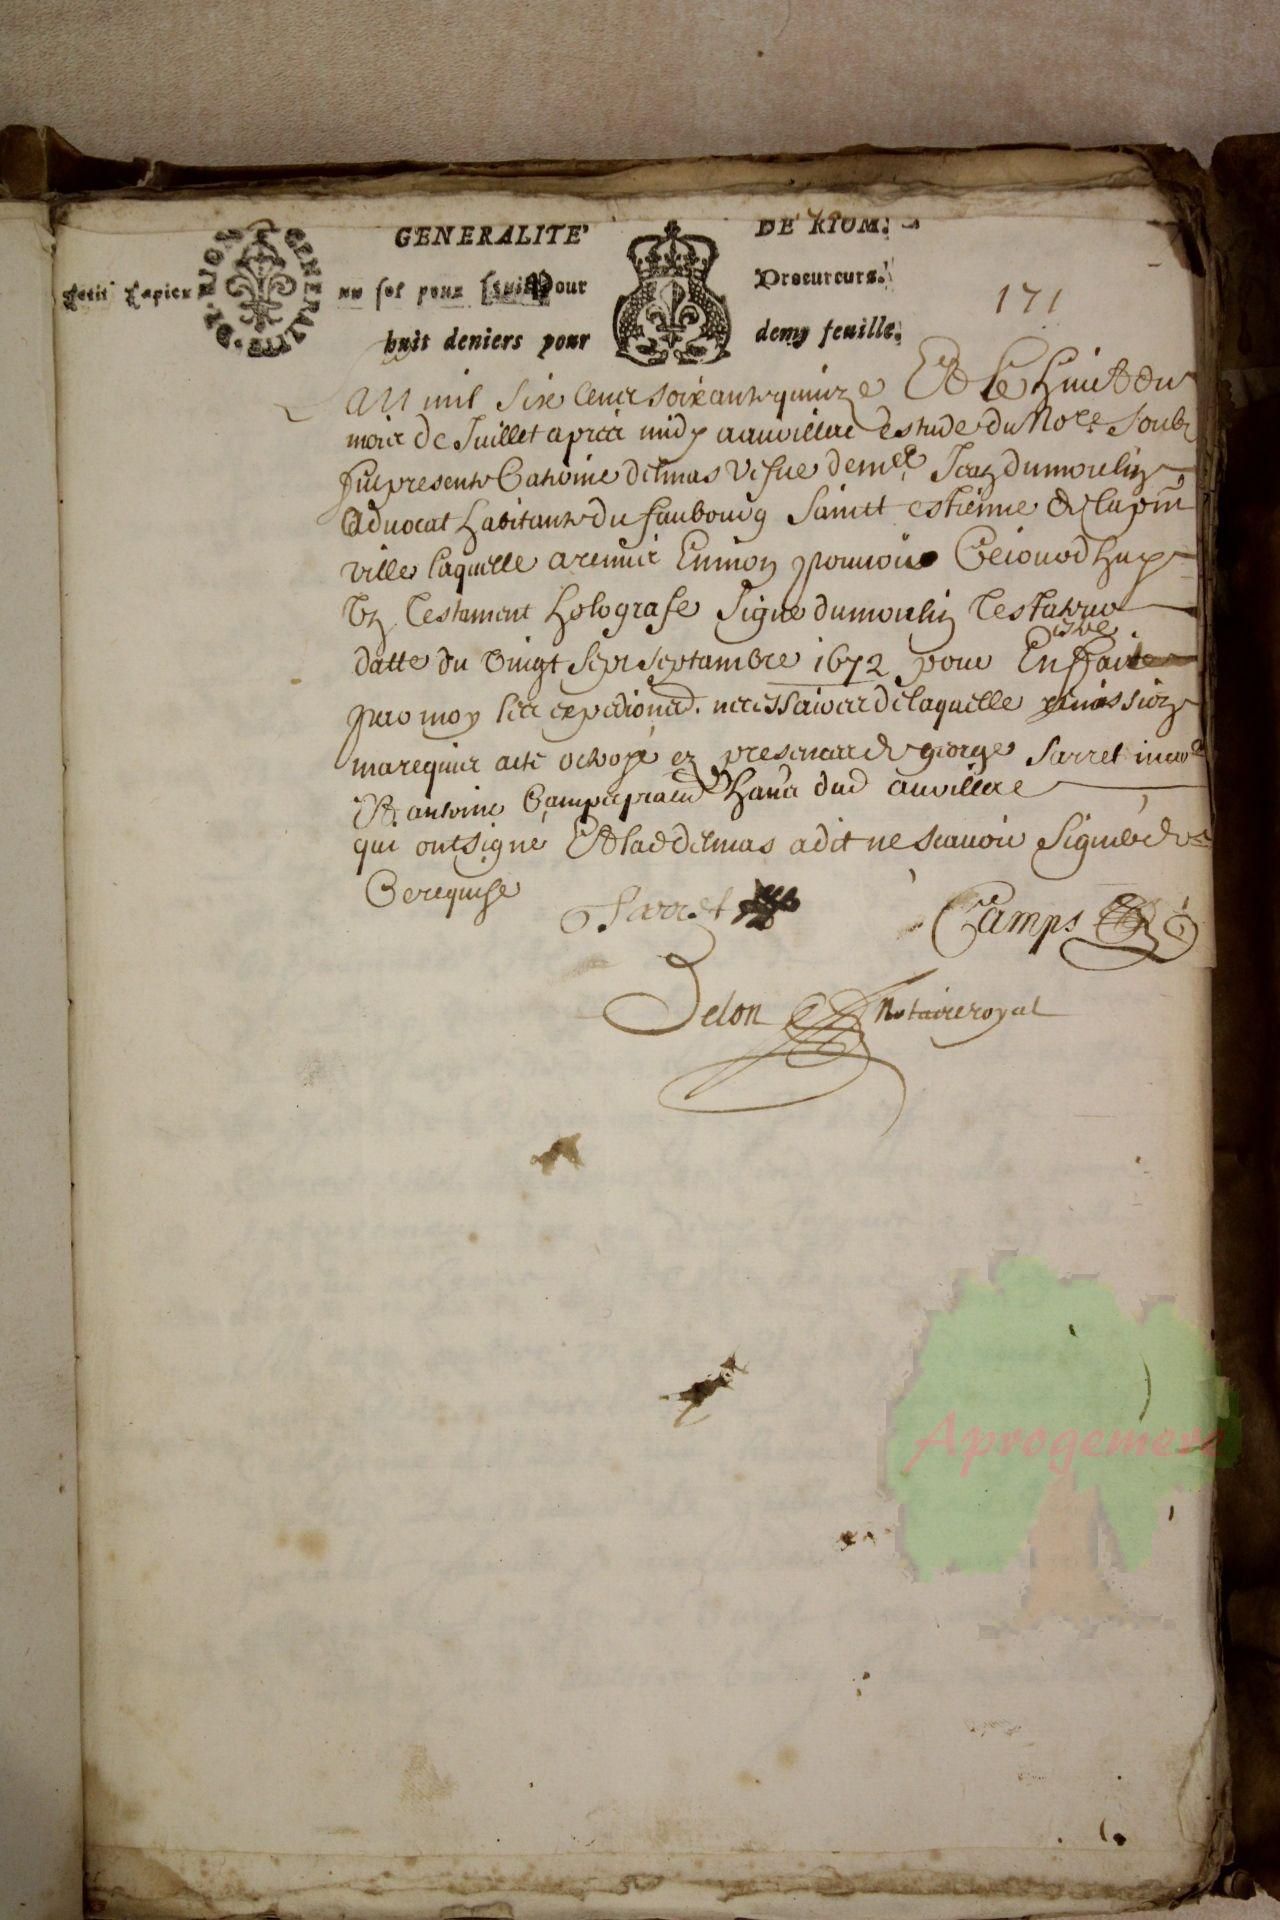 GENERALITE' DE RIOM.
GENERALITE DE RIOM
Petit Papier un sol pour Pour Procureurs.
huit deniers pour demy feuille.
171
An mil six cens soixante quinze Et le huict du
mois de Juillet apres midy a auvillar estude du Nore soubz
presente Catherine delmas vefue de me Jean dumoulin
Advocat habitante du faubourg sainct estienne de la pnt
ville laquelle a remis en mon pouvoir Cejourdhuy
Un Testament holografe signe dumoulin Testateur
datte du vingt sept septambre 1672 pour En
estre
faite
par moy les expedions necessaires de laquelle remission
ma requis acte octroyé ez presences de george Sarret
Et antoine Campe hans dud auvillar
qui ont signé Et lad delmas a dit ne scavoir Signer de
Ce requise
Sarret
Camps
Delon Notaire royal
Aprogemere